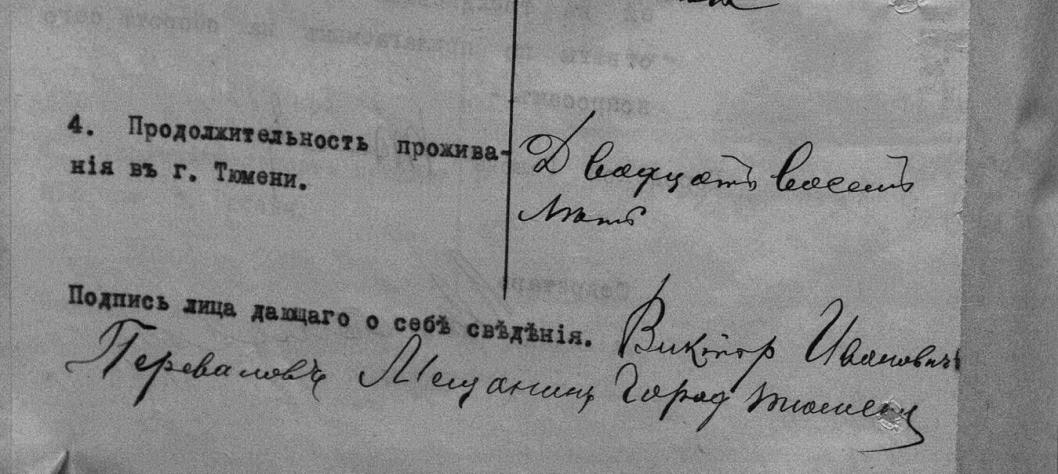 4. Продолжительность прожива-
нія въ г. Тюмени.
Двадцать восемь
лѣтъ
Подпись лица дающаго о себѣ свѣдѣнія. Викторъ Ивановичъ
Переваловъ Мещанинъ Город Тюмень